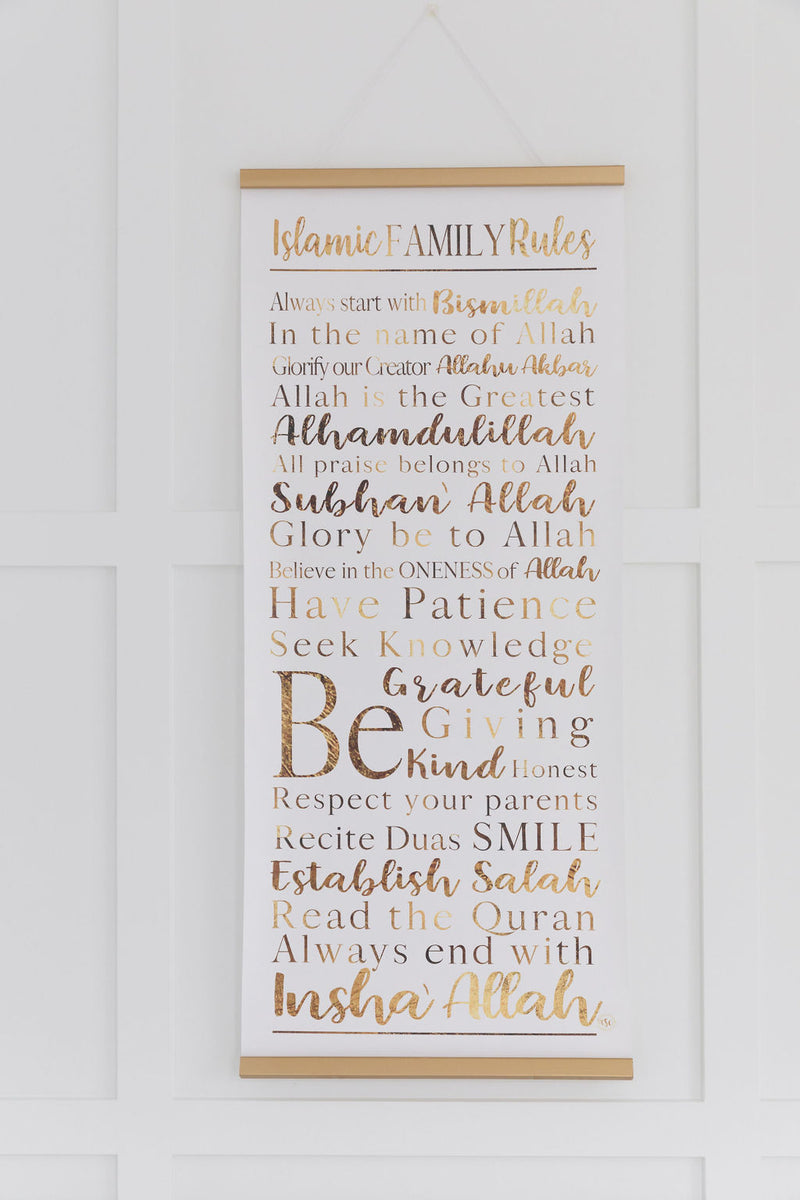 Islamic FAMILY Rules
Always start with Bismillah
In the name of Allah
Glorify our Creator Allahu Akbar
Allah is the Greatest
Alhamdulillah
All praise belongs to Allah
Subhan` Allah
Glory be to Allah
Believe in the ONENESS of Allah
Have Patience
Seek Knowledge
Be Grateful
Giving
Kind Honest
Respect your parents
Recite Duas SMILE
Establish Salah
Read the Quran
Always end with
Insha` Allah